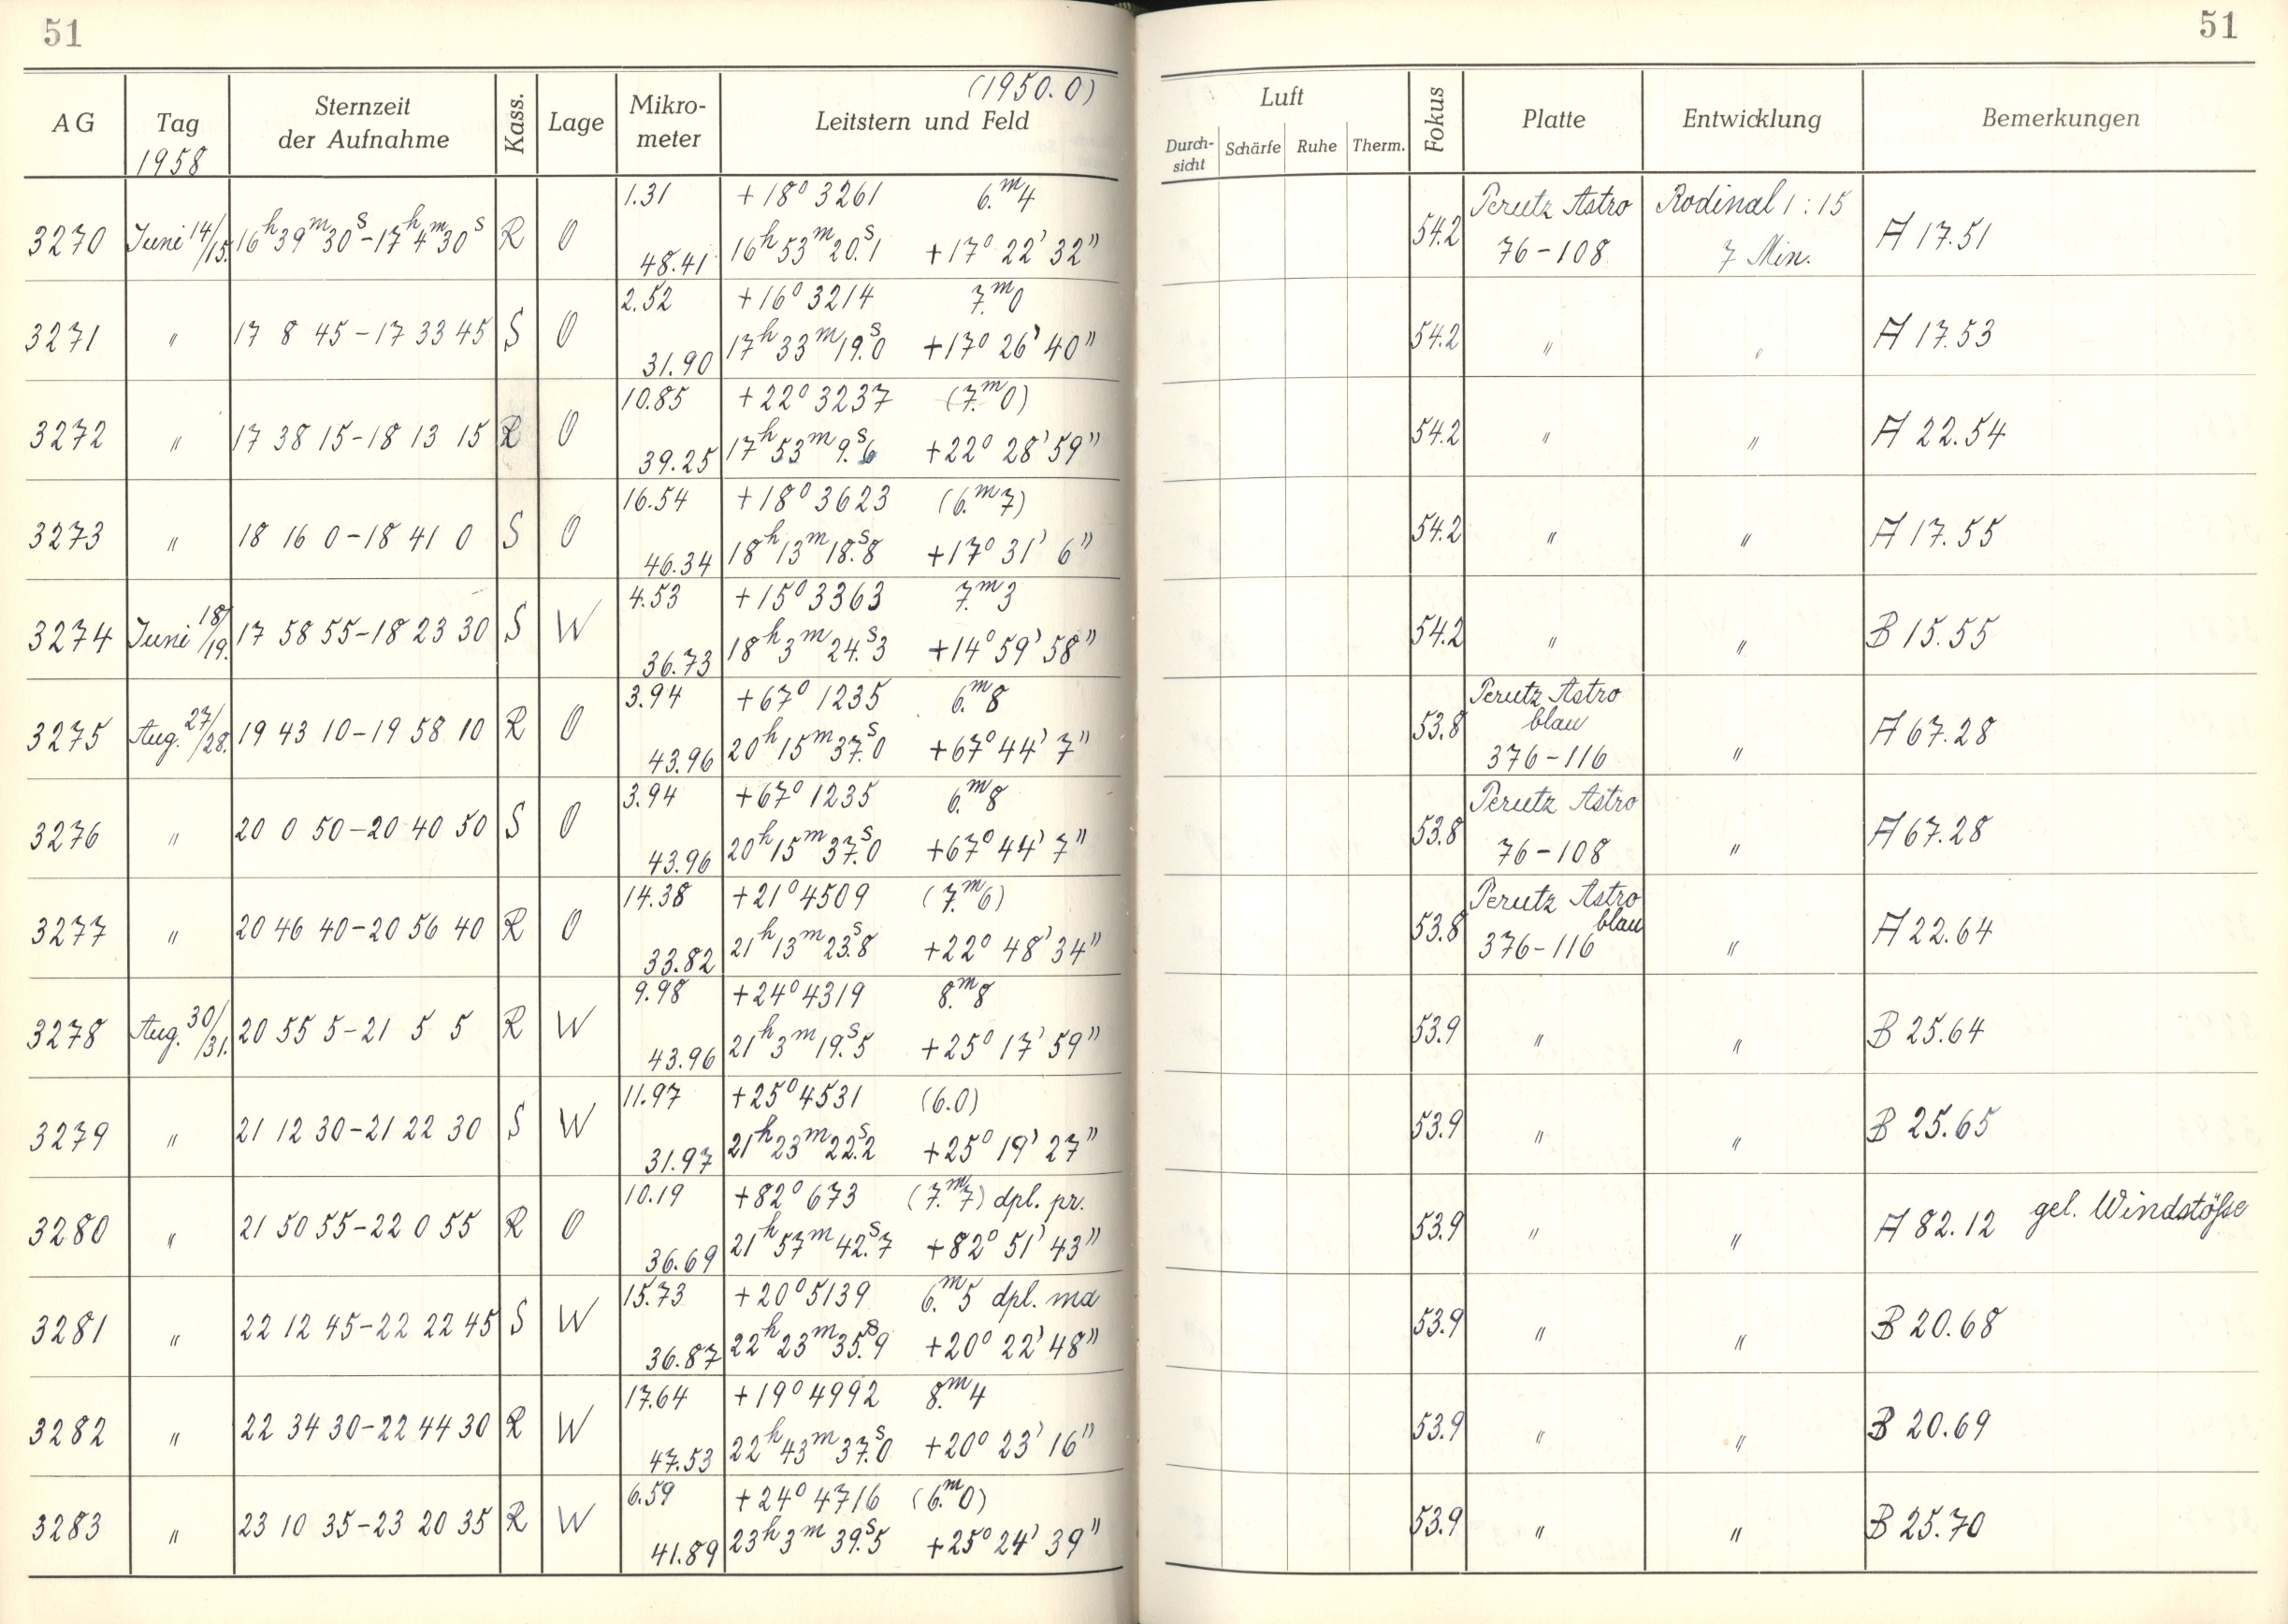 51
51
(1950.0)
AG Tag Sternzeit der Aufnahme Kass. Lage Mikro-meter Leitstern und Feld Luft Fokus Platte Entwicklung Bemerkungen
1958 Durch-sicht Schärfe Ruhe Therm.
1.31 +18° 3261 6.ᵐ4 Perutz Astro Rodinal 1:15
3270 Juni 14/15. 16ʰ39ᵐ30ˢ-17ʰ4ᵐ30ˢ R O 54.2 A 17.51
48.41 16ʰ53ᵐ20.ˢ1 +17° 22' 32" 76-108 7 Min.
2.52 +16° 3214 7.ᵐ0
3271 " 17 8 45-17 33 45 S O 54.2 " " A 17.53
31.90 17ʰ33ᵐ19.ˢ0 +17° 26' 40"
10.85 +22° 3237 (7.ᵐ0)
3272 " 17 38 15-18 13 15 R O 54.2 " " A 22.54
39.25 17ʰ53ᵐ9.ˢ6 +22° 28' 59"
16.54 +18° 3623 (6.ᵐ7)
3273 " 18 16 0-18 41 0 S O 54.2 " " A 17.55
46.34 18ʰ13ᵐ18.ˢ8 +17° 31' 6"
4.53 +15° 3363 7.ᵐ3
3274 Juni 18/19. 17 58 55-18 23 30 S W 54.2 " " B 15.55
36.73 18ʰ3ᵐ24.ˢ3 +14° 59' 58"
3.94 +67° 1235 6.ᵐ8 Perutz Astro
3275 Aug. 27/28. 19 43 10-19 58 10 R O 53.8 blau A 67.28
43.96 20ʰ15ᵐ37.ˢ0 +67° 44' 7" 376-116 "
3.94 +67° 1235 6.ᵐ8 Perutz Astro
3276 " 20 0 50-20 40 50 S O 53.8 A 67.28
43.96 20ʰ15ᵐ37.ˢ0 +67° 44' 7" 76-108 "
14.38 +21° 4509 (7.ᵐ6) Perutz Astro
3277 " 20 46 40-20 56 40 R O 53.8 blau A 22.64
33.82 21ʰ13ᵐ23.ˢ8 +22° 48' 34" 376-116 "
9.98 +24° 4319 8.ᵐ8
3278 Aug. 30/31. 20 55 5-21 5 5 R W 53.9 " " B 25.64
43.96 21ʰ3ᵐ19.ˢ5 +25° 17' 59"
11.97 +25° 4531 (6.0)
3279 " 21 12 30-21 22 30 S W 53.9 " " B 25.65
31.97 21ʰ23ᵐ22.ˢ2 +25° 19' 27"
10.19 +82° 673 (7.ᵐ7) dpl. pr.
3280 " 21 50 55-22 0 55 R O 53.9 " " A 82.12 gel. Windstöße
36.69 21ʰ57ᵐ42.ˢ7 +82° 51' 43"
15.73 +20° 5139 6.ᵐ5 dpl. md
3281 " 22 12 45-22 22 45 S W 53.9 " " B 20.68
36.87 22ʰ23ᵐ35.ˢ9 +20° 22' 48"
17.64 +19° 4992 8.ᵐ4
3282 " 22 34 30-22 44 30 R W 53.9 " " B 20.69
47.53 22ʰ43ᵐ37.ˢ0 +20° 23' 16"
6.59 +24° 4716 (6.ᵐ0)
3283 " 23 10 35-23 20 35 R W 53.9 " " B 25.70
41.89 23ʰ3ᵐ39.ˢ5 +25° 24' 39"